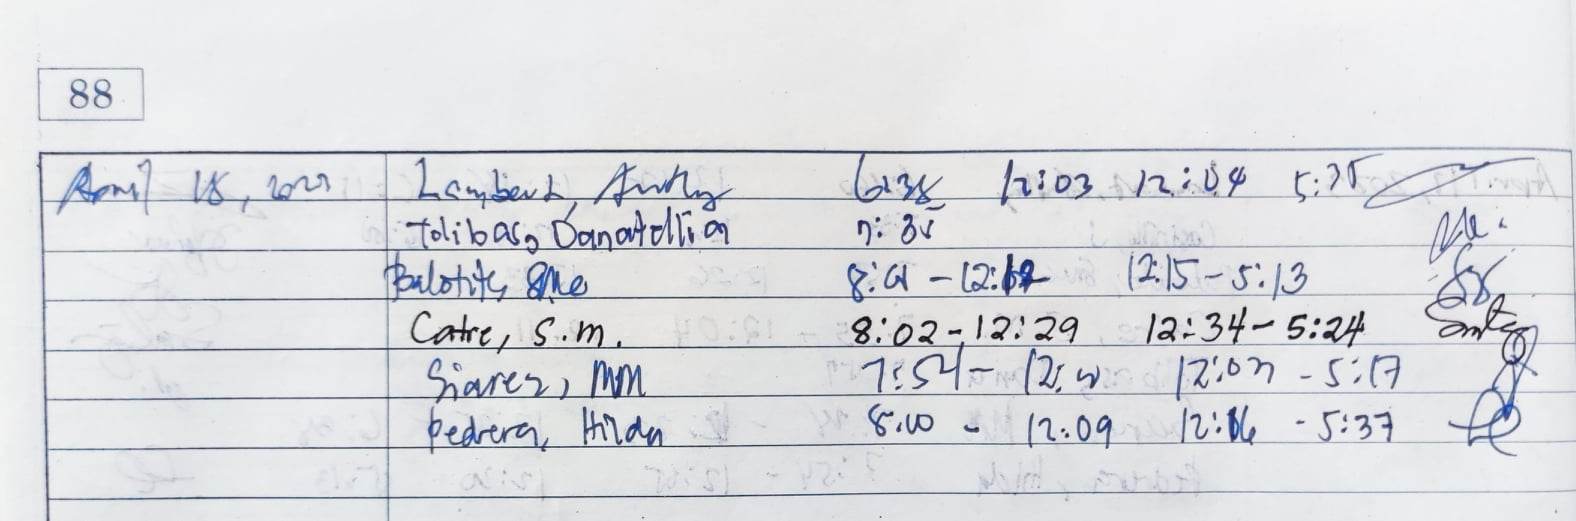 88
April 18, 2023 Lambert, 6:38 12:03 12:04 5:35
Tolibas, Danatellia 7:35
Balotite, 8:01 - 12:12 12:15 - 5:13
Catre, S.M. 8:02 - 12:29 12:34 - 5:24
Siarez, MM 7:54 - 12: 12:07 - 5:17
Pedrera, Hilda 8:00 - 12:09 12:16 - 5:37